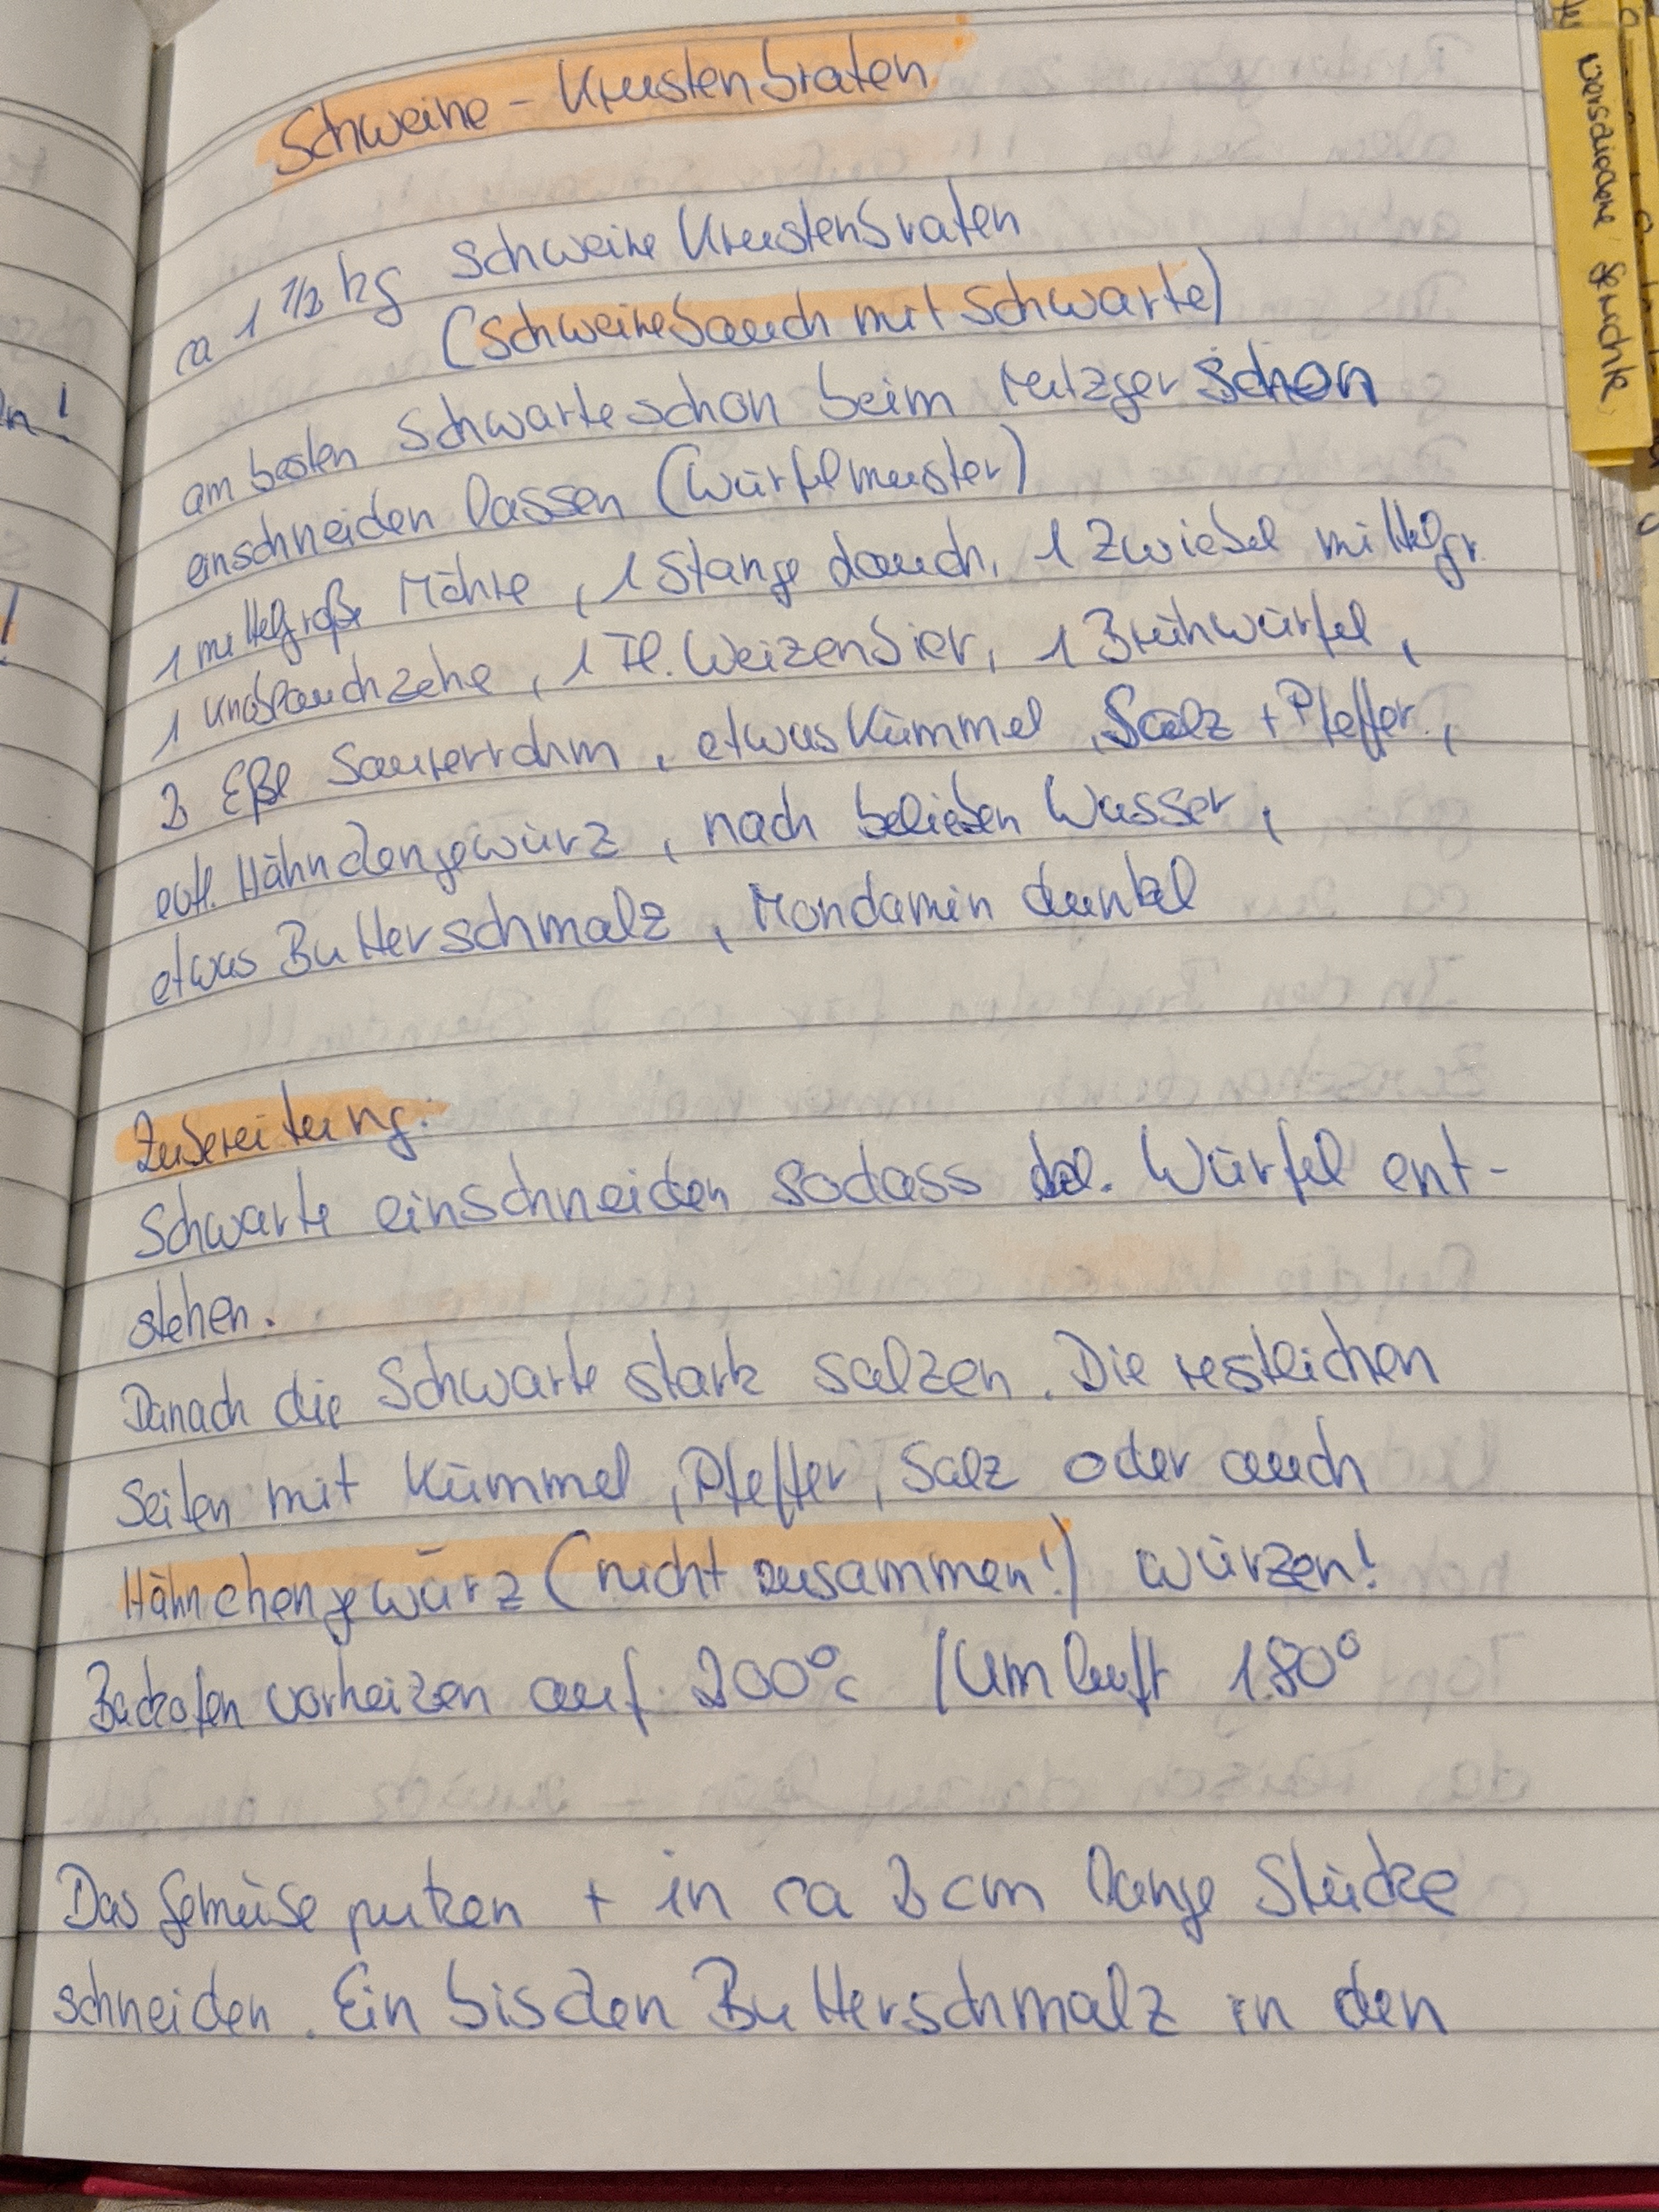 Schweine-Krustenbraten
ca 1 1/2 kg Schweine Krustenbraten
(Schweinebauch mit Schwarte)
am besten Schwarte schon beim Metzger schon
einschneiden lassen (Würfelmuster)
1 mittelgroße Möhre, 1 Stange Lauch, 1 Zwiebel mittelgr.
1 Knoblauchzehe, 1 Fl. Weizenbier, 1 Brühwürfel,
2 Eßl Sauerrahm, etwas Kümmel, Salz + Pfeffer,
evtl. Hähnchengewürz, nach belieben Wasser,
etwas Butterschmalz, Mondamin dunkel
Zubereitung:
Schwarte einschneiden sodass Würfel ent-
stehen.
Danach die Schwarte stark salzen. Die restlichen
Seiten mit Kümmel, Pfeffer, Salz oder auch
Hähnchengewürz (nicht zusammen!) würzen!
Backofen vorheizen auf 200°C / Umluft 180°
Das Gemüse putzen + in ca 2 cm lange Stücke
schneiden. Ein bischen Butterschmalz in den
verschiedene Gerichte